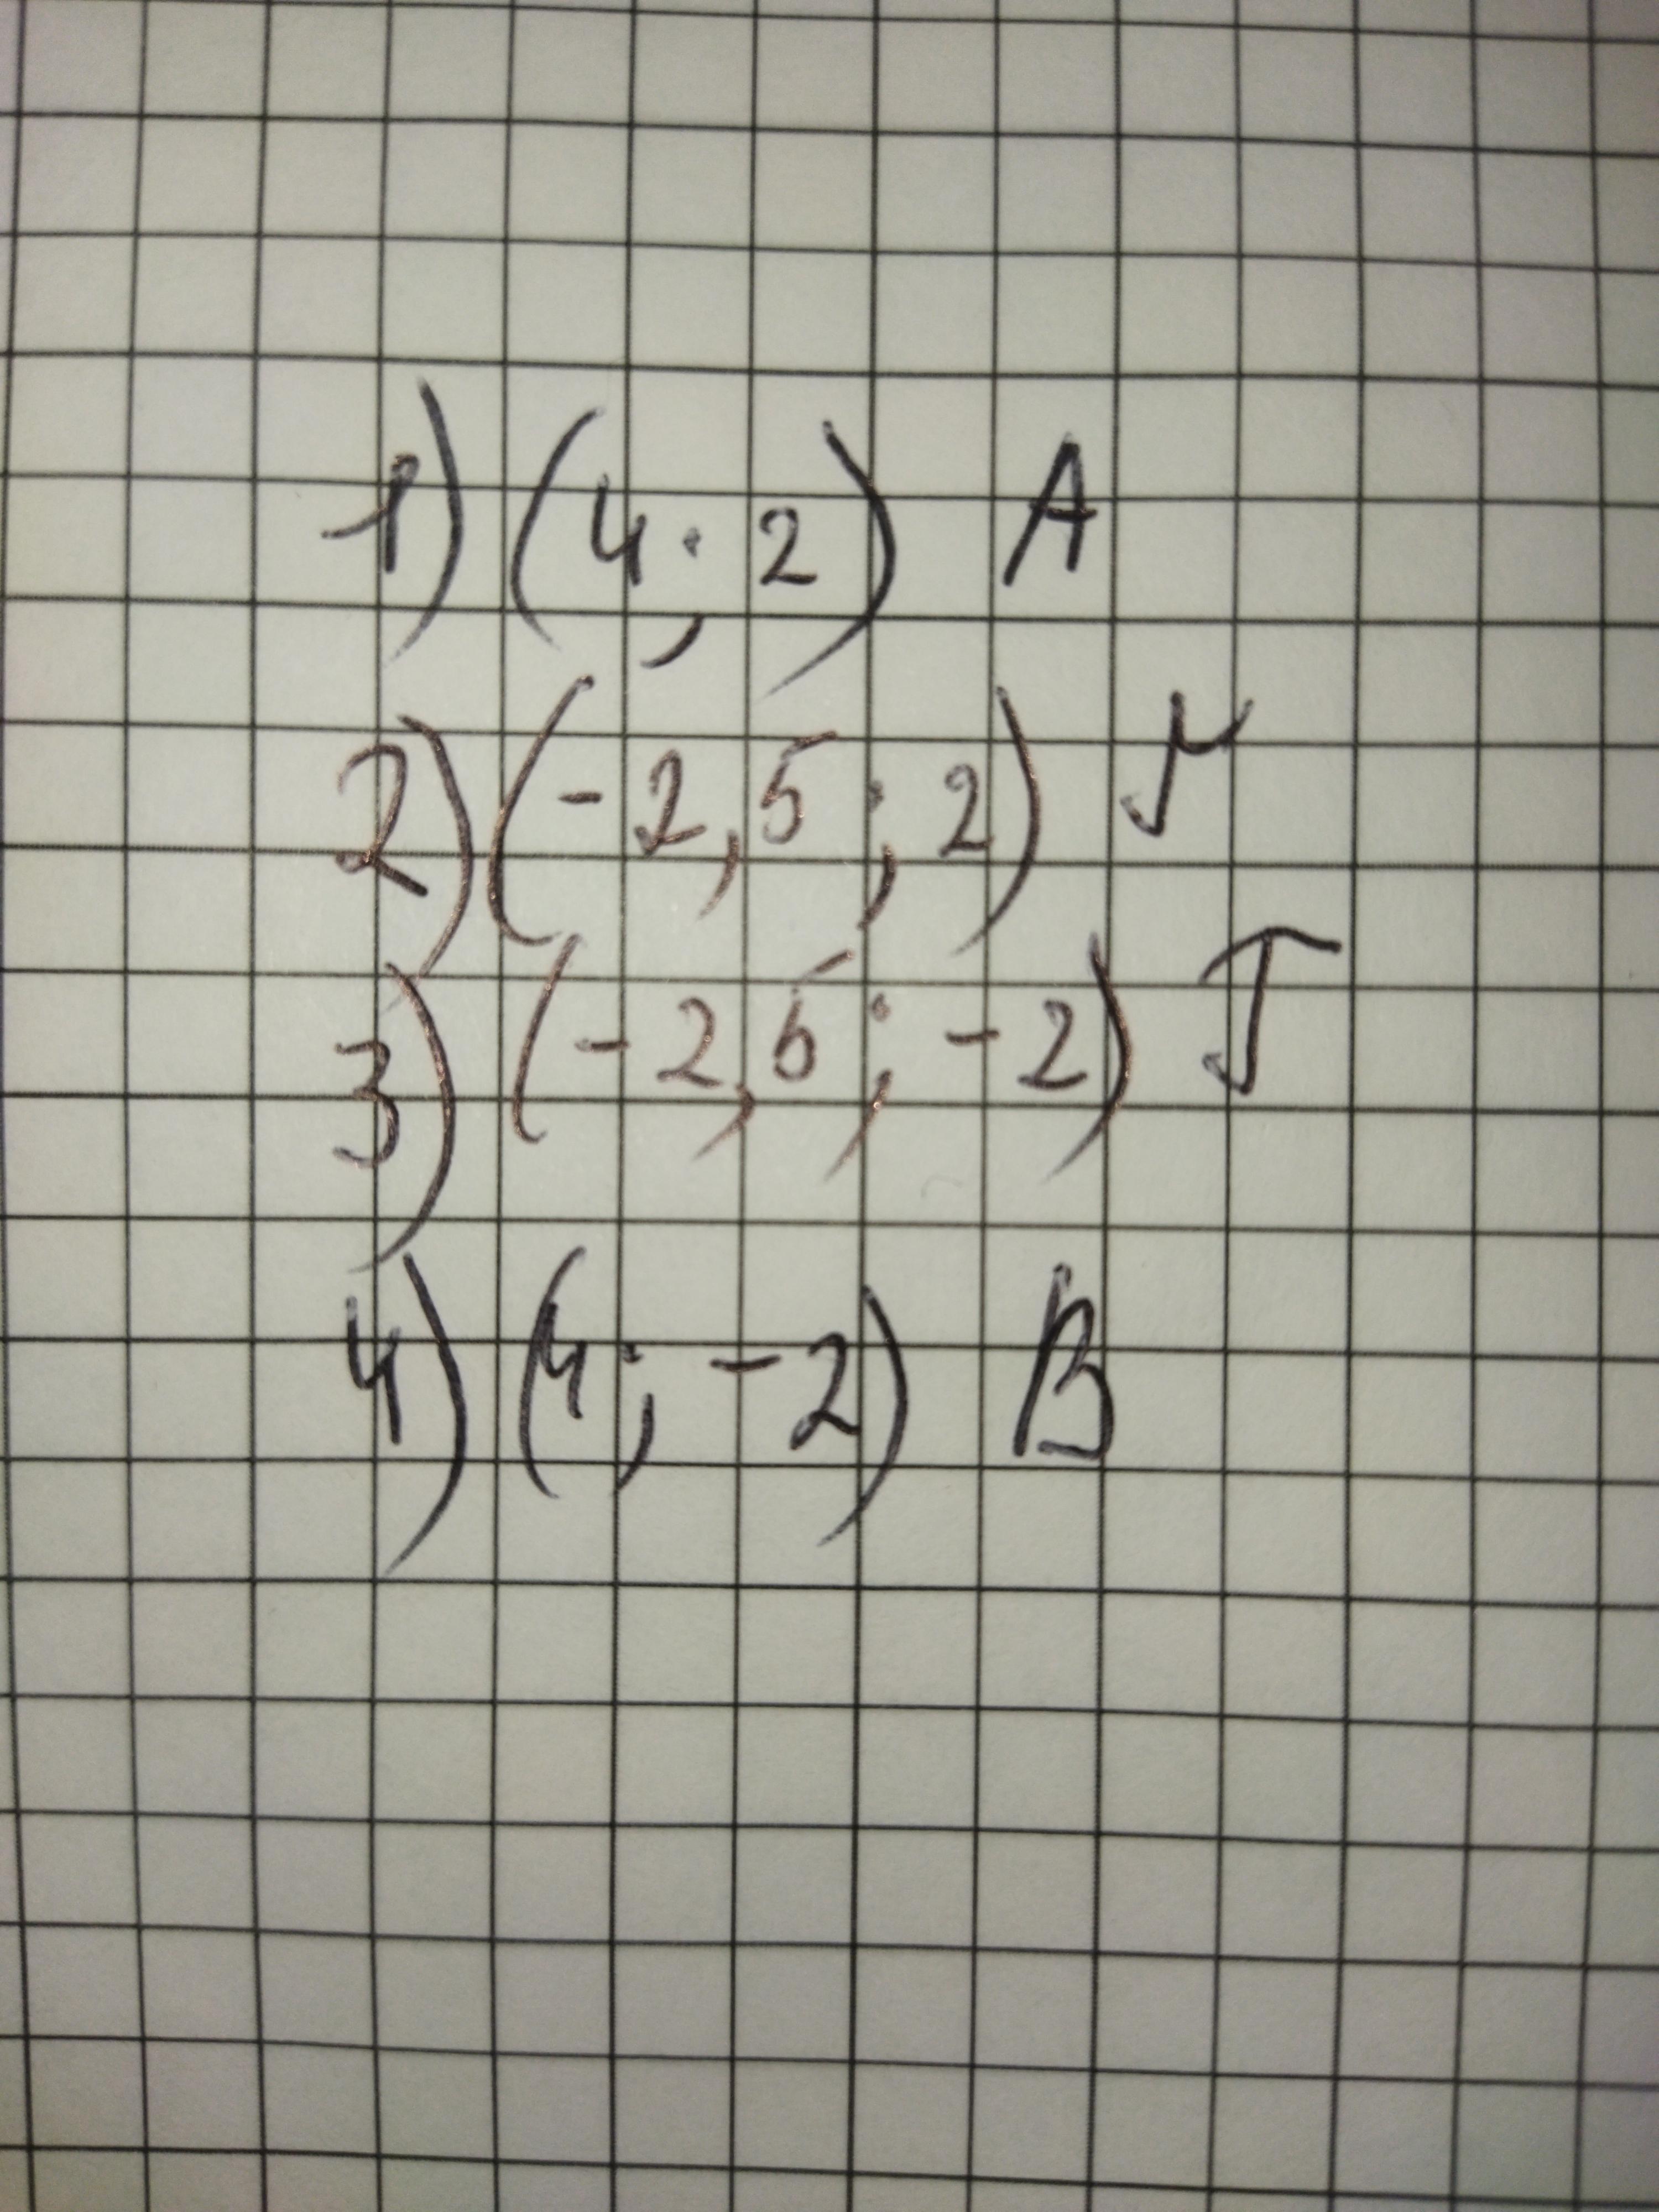 1) (4; 2) A
2) (-2,5; 2) Г
3) (-2,5; -2) T
4) (4; -2) B